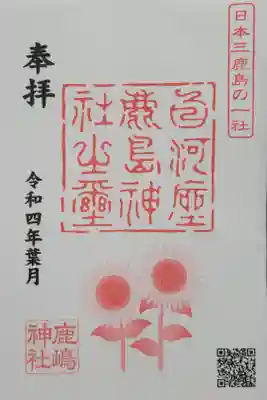 日本三鹿島の一社
奉拝
白河座
鹿島神
社之璽
令和四年葉月
鹿嶋
神社